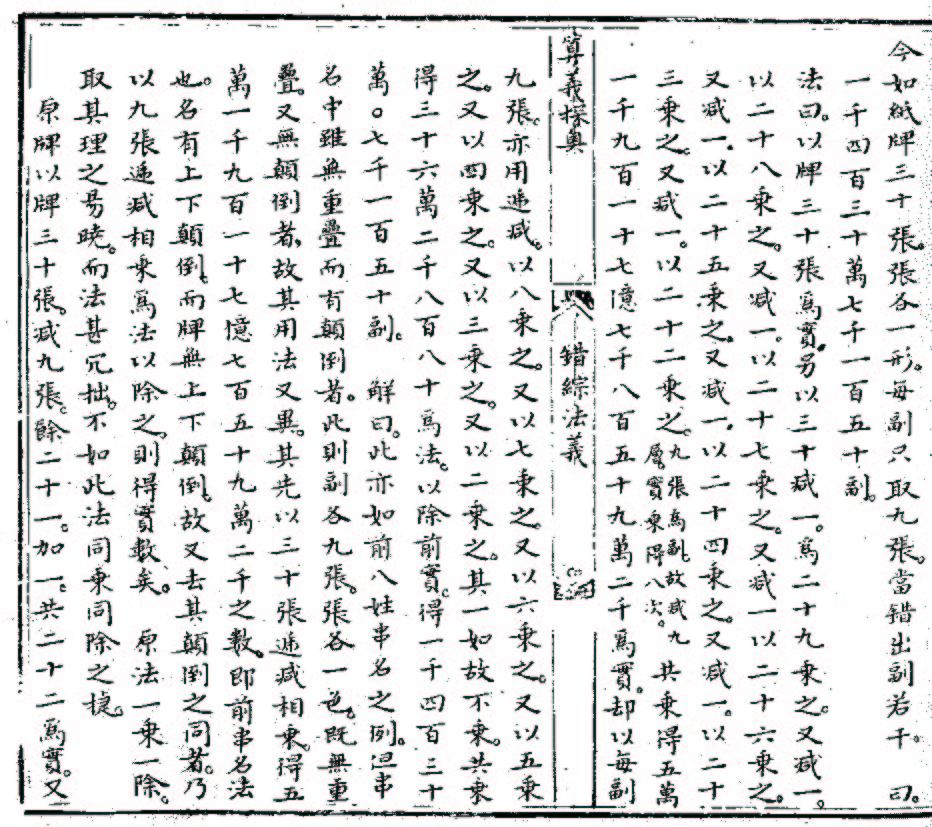 今如紙牌三十張。張各一形。每副只取九張。當錯出副若干。曰。
一千四百三十萬七千一百五十副。
法曰。以牌三十張爲實。另以三十減一。爲二十九乘之。又減一。
以二十八乘之。又減一。以二十七乘之。又減一以二十六乘之。
又減一。以二十五乘之。又減一。以二十四乘之。又減一。以二十
三乘之。又減一。以二十二乘之。九張爲副。故減九層。實乘得八次。共乘得五萬
一千九百一十七億七千八百五十九萬二千爲實。却以每副
算義探奧
錯綜法義
九張。亦用遞減。以八乘之。又以七乘之。又以六乘之。又以五乘
之。又以四乘之。又以三乘之。又以二乘之。其一如故不乘。共乘
得三十六萬二千八百八十爲法。以除前實。得一千四百三十
萬○七千一百五十副。 解曰。此亦如前八姓串名之例。但串
名中雖無重疊而有顛倒者。此則副各九張。張各一色。既無重
疊。又無顛倒者。故其用法又異。其先以三十張遞減相乘。得五
萬一千九百一十七億七百五十九萬二千之數。即前串名法
也。名有上下顛倒。而牌無上下顛倒。故又去其顛倒之同者。乃
以九張遞減相乘爲法以除之。則得實數矣。 原法一乘一除。
取其理之易曉。而法甚冗拙。不如此法同乘同除之捷。
原牌以牌三十張。減九張。餘二十一。加一。共二十二爲實。又